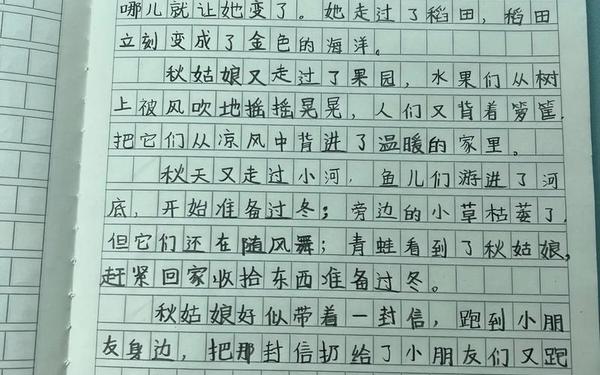 哪儿就让她变了。她走过了稻田，稻田
立刻变成了金色的海洋。
秋姑娘又走过了果园，水果们从树
上被风吹地摇摇晃晃，人们又背着箩筐，
把它们从凉风中背进了温暖的家里。
秋天又走过小河，鱼儿们游进了河
底，开始准备过冬；旁边的小草枯萎了，
但它们还在随风舞；青蛙看到了秋姑娘，
赶紧回家收拾东西准备过冬。
秋姑娘好似带着一封信，跑到小朋
友身边，把那封信扔给了小朋友们又跑